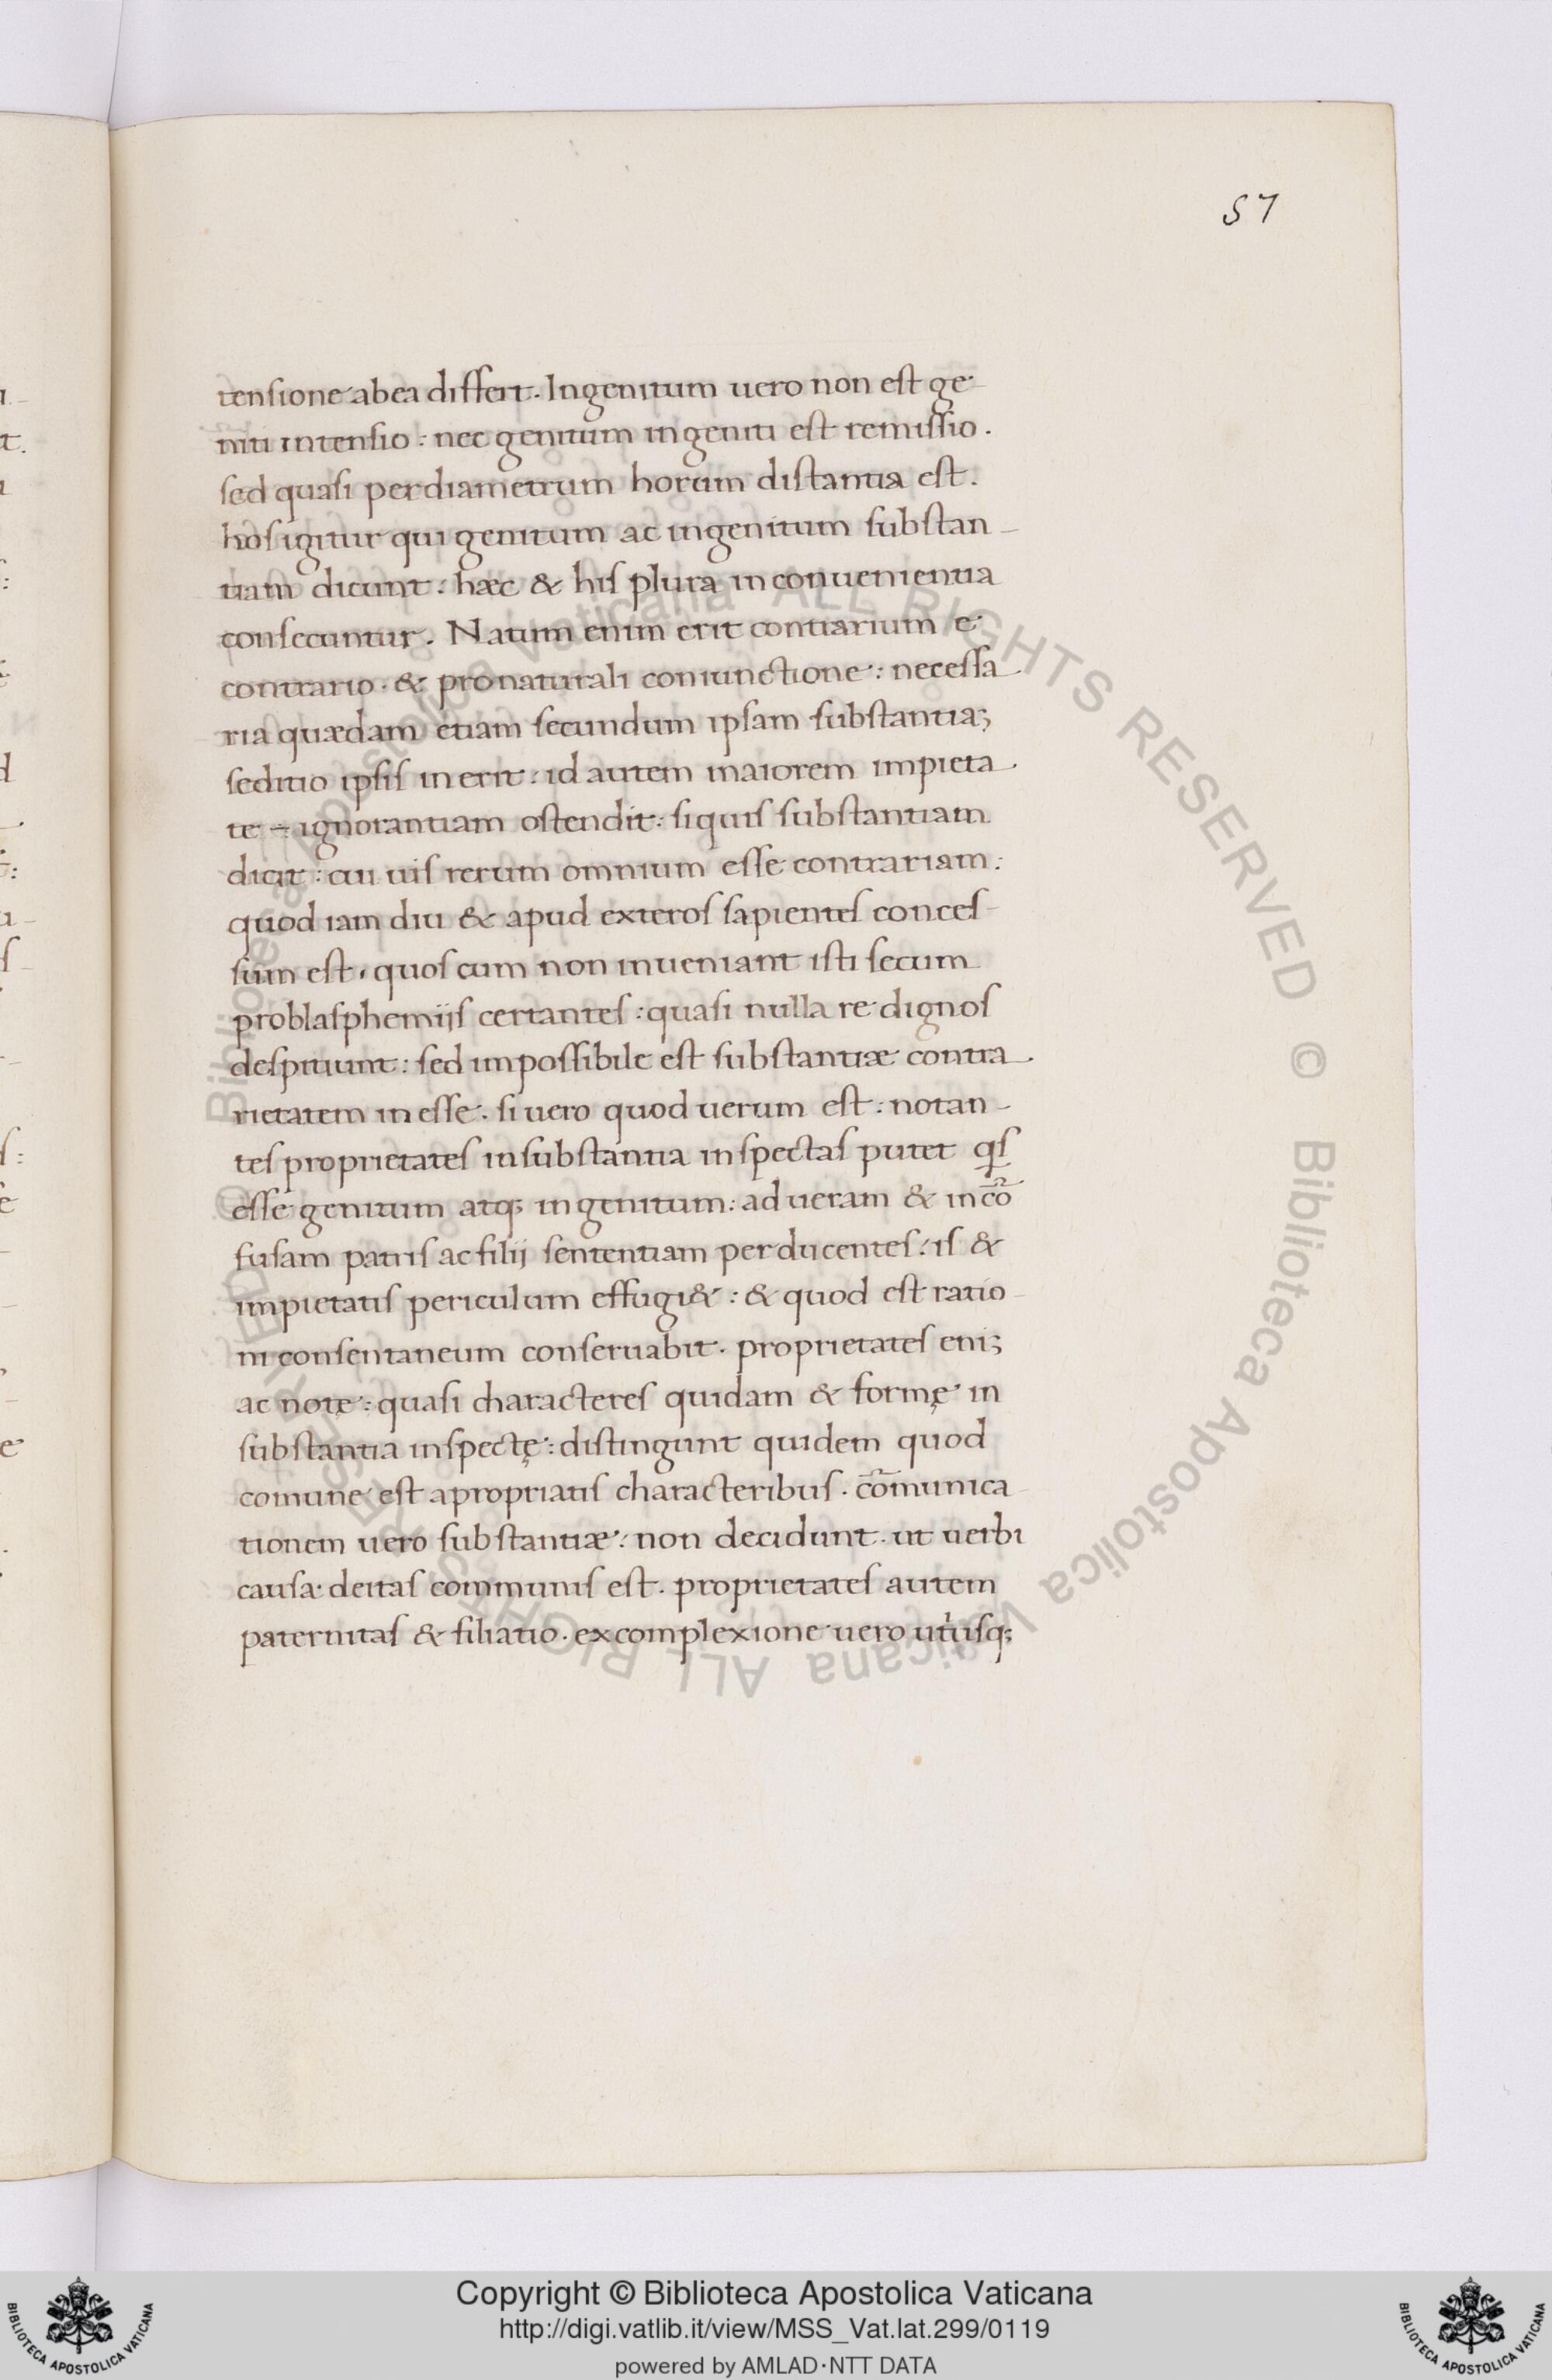 57
tensione ab ea differt. Ingenitum uero non est ge-
niti intensio: nec genitum ingeniti est remissio.
sed quasi per diametrum horum distantia est.
hos igitur qui genitum ac ingenitum substan-
tiam dicunt: hæc & his plura inconuenientia
consecuntur. Natum enim erit contrarium e
contrario. & pro naturali coniunctione: necessa-
ria quædam etiam secundum ipsam substantiaꝫ
seditio ipsis inerit: id autem maiorem impieta-
te ignorantiam ostendit: siquis substantiam
dicit: cui uis rerum omnium esse contrariam:
quod iam diu & apud exteros sapientes conces-
sum est, quos cum non inueniant isti secum
pro blasphemijs certantes: quasi nulla re dignos
despiciunt: sed impossibile est substantiæ contra-
rietatem inesse. si uero quod uerum est: notan-
tes proprietates in substantia inspectas putet q̄s
esse genitum atq; ingenitum: ad ueram & incō
fusam patris ac filij sententiam perducentes: is &
impietatis periculum effugi&: & quod est ratio-
ni consentaneum conseruabit. proprietates eniꝫ
ac notę: quasi characteres quidam & formę in
substantia inspectę: distingunt quidem quod
comune est a propriatis characteribus. cōmunica-
tionem uero substantiæ: non decidunt. ut uerbi
causa: deitas communis est. proprietates autem
paternitas & filiatio. ex complexione uero utriusq;
Copyright © Biblioteca Apostolica Vaticana
http://digi.vatlib.it/view/MSS_Vat.lat.299/0119
powered by AMLAD·NTT DATA
BIBLIOTECA APOSTOLICA VATICANA
BIBLIOTECA APOSTOLICA VATICANA
© Biblioteca Apostolica Vaticana ALL RIGHTS RESERVED
© Biblioteca Apostolica Vaticana ALL RIGHTS RESERVED